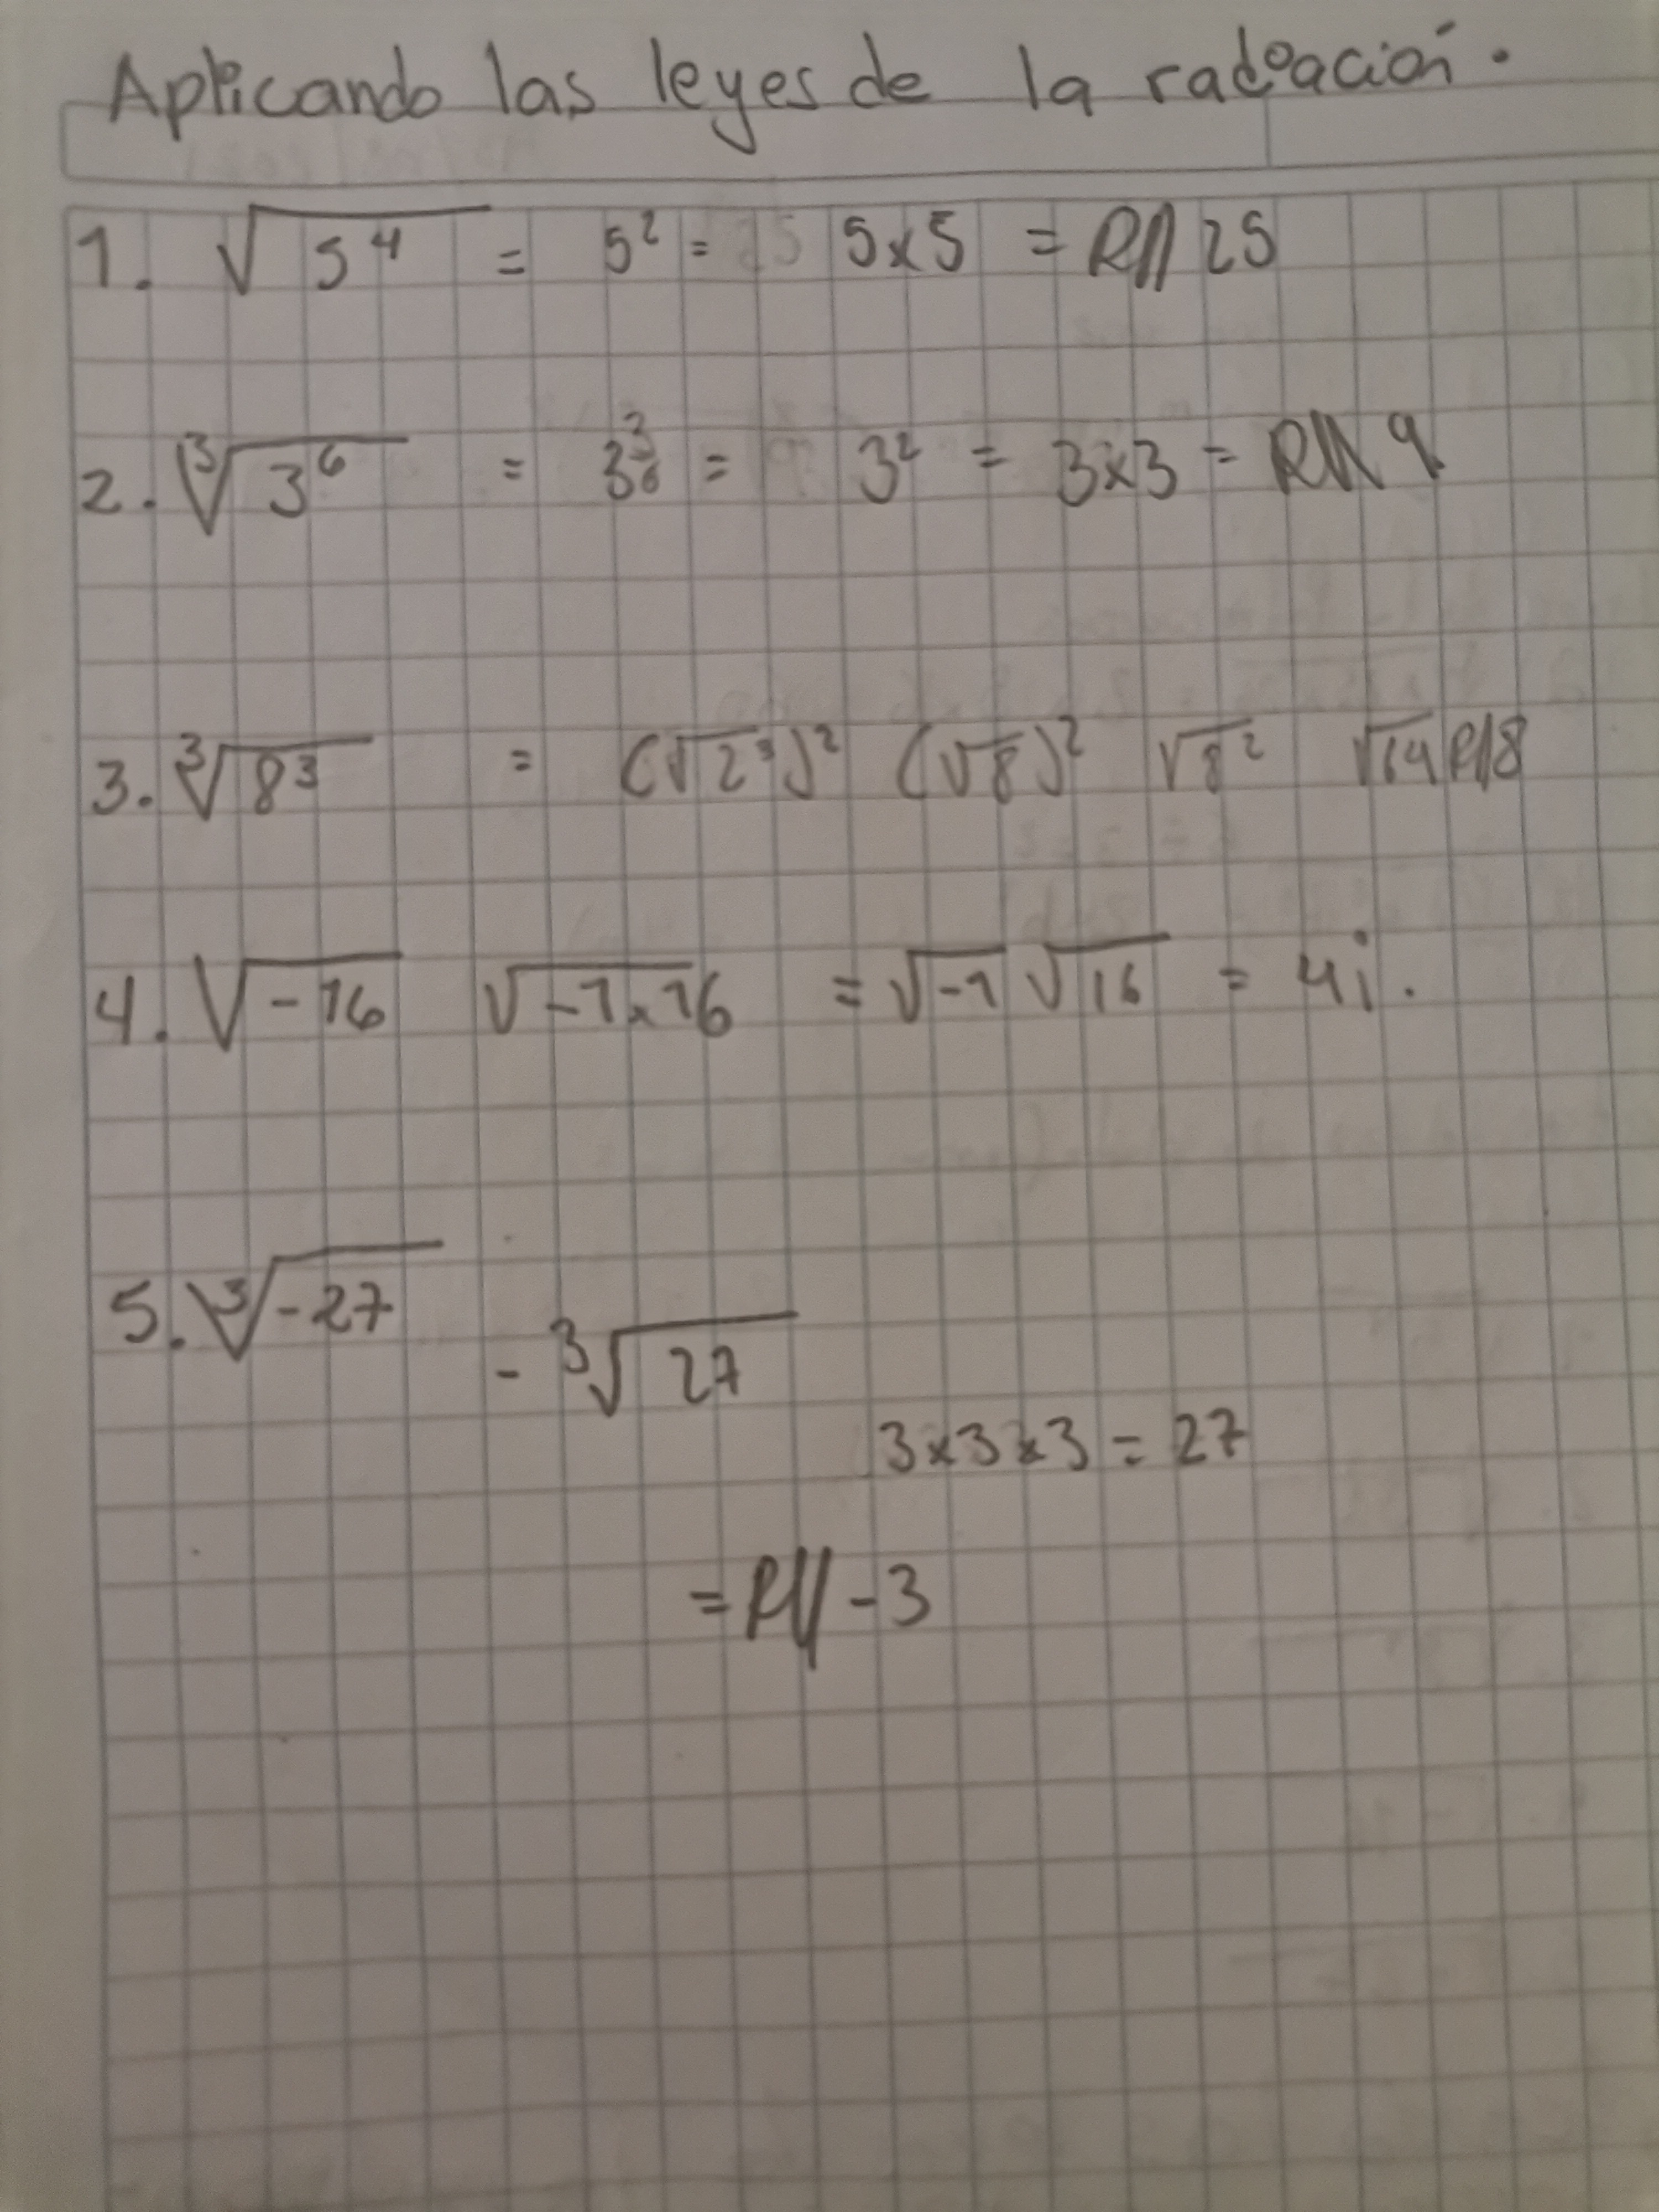 Aplicando las leyes de la radiación.
1. √5⁴ = 5² = 5x5 = R// 25
2. ∛3⁶ = 3^(3/6) = 3² = 3x3 = R// 9
3. ∛8³ = (√2³)² (√8)² √8² √64 R// 8
4. √-16 √-1x16 = √-1 √16 = 4i.
5. ∛-27 - ∛27
3x3x3 = 27
= R// -3